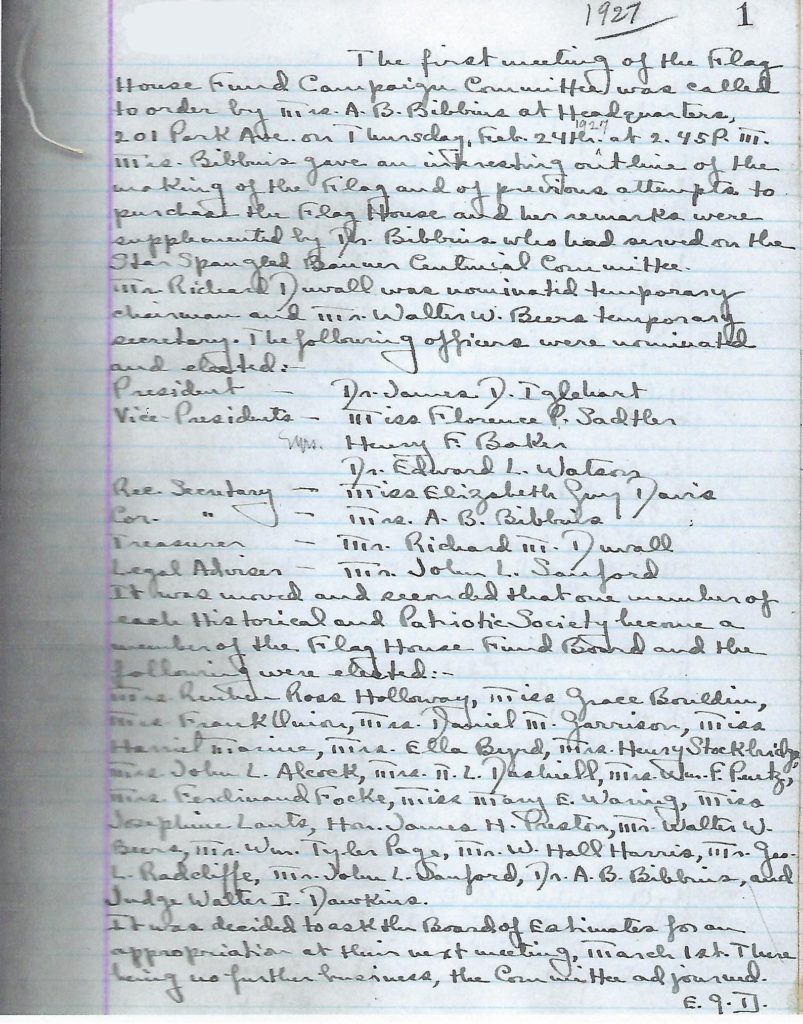 1927 1
The first meeting of the Flag
House Fund Campaign Committee was called
to order by Mrs. A. B. Bibbins at Headquarters,
201 Park Ave. on Thursday, Feb. 24th. 1927 at 2.45 P. M.
Mrs. Bibbins gave an interesting outline of the
making of the Flag and of previous attempts to
purchase the Flag House and her remarks were
supplemented by Dr. Bibbins who had served on the
Star Spangled Banner Centennial Committee.
Mr. Richard Duvall was nominated temporary
chairman and Mr. Walter W. Beers temporary
secretary. The following officers were nominated
and elected:-
President - Dr. James D. Iglehart
Vice-Presidents - Miss Florence P. Sadtler
Mrs. Henry F. Baker
Dr. Edward L. Watson
Rec. Secretary - Miss Elizabeth Guy Davis
Cor. " - Mrs. A. B. Bibbins
Treasurer - Mr. Richard M. Duvall
Legal Adviser - Mr. John L. Sanford
It was moved and seconded that one member of
each Historical and Patriotic Society become a
member of the Flag House Fund Board and the
following were elected:-
Mrs. Reuben Ross Holloway, Miss Grace Bouldin,
Frank Union, Mrs. Daniel M. Garrison, Miss
Harriet Marine, Mrs. Ella Byrd, Mrs. Henry Stockbridge,
Mrs. John L. Alcock, Mrs. N. L. Dashiell, Mrs. Wm. F. Pentz,
Mrs. Ferdinand Focke, Miss Mary E. Waring, Miss
Josephine Lants, Hon. James H. Preston, Mr. Walter W.
Beers, Mr. Wm. Tyler Page, Mr. W. Hall Harris, Mr. Geo.
L. Radcliffe, Mr. John L. Sanford, Dr. A. B. Bibbins, and
Judge Walter I. Dawkins.
It was decided to ask the Board of Estimates for an
appropriation at their next meeting, March 1st. There
being no further business, the Committee adjourned.
E. G. D.